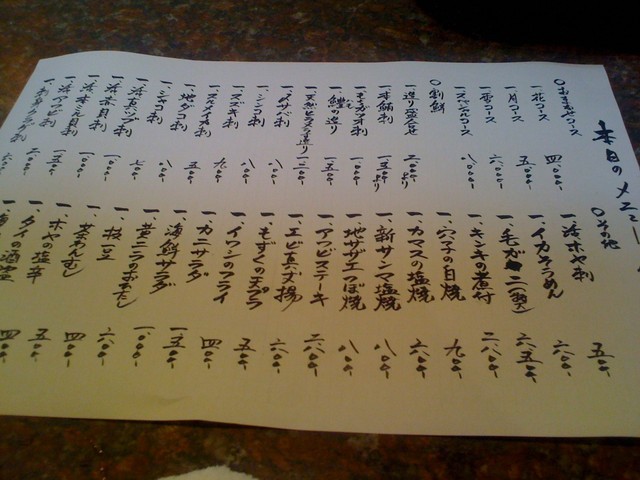 本日のメニュー
○おまかせコース
一、花コース 四、〇〇〇-
一、月コース 五、〇〇〇-
一、雪コース 六、〇〇〇-
一、スペシャルコース 八、〇〇〇-
○刺鮮
一、造り盛合せ 二、〇〇〇-より
一、本鮪刺 一、三〇〇-より
一、生カツオ刺 一、〇〇〇-
一、鱧の造り 一、五〇〇-
一、天然ヒラメ造り 一、二〇〇-
一、〆サバ刺 一、〇〇〇-
一、シンコ刺 八〇〇-
一、スズキ刺 八〇〇-
一、スルメイカ刺 九〇〇-
一、地ダコ刺 五〇〇-
一、シャコ刺 八〇〇-
一、活真ツブ刺 七〇〇-
一、活赤貝刺 一、〇〇〇-
一、活本ミル貝刺 一、〇〇〇-
一、活アワビ刺 一、五〇〇-
○その他
一、活ホヤ刺 五〇〇-
一、イカそうめん 六〇〇-
一、毛ガニ 六、五〇〇-
一、キンキの煮付 二、八〇〇-
一、穴子の白焼 九〇〇-
一、カマスの塩焼 六〇〇-
一、新サンマ塩焼 八〇〇-
一、地サザエつぼ焼 八〇〇-
一、アワビステーキ 二、八〇〇-
一、エビ真丈揚 六〇〇-
一、もずくの天プラ 五〇〇-
一、イワシのフライ 四〇〇-
一、カニサラダ 五〇〇-
一、海鮮サラダ 一、五〇〇-
一、黄ニラのおひたし 一、〇〇〇-
一、枝豆 六〇〇-
一、茶わんむし 四〇〇-
一、ホヤの塩辛 五〇〇-
一、タイの酒盗 四〇〇-